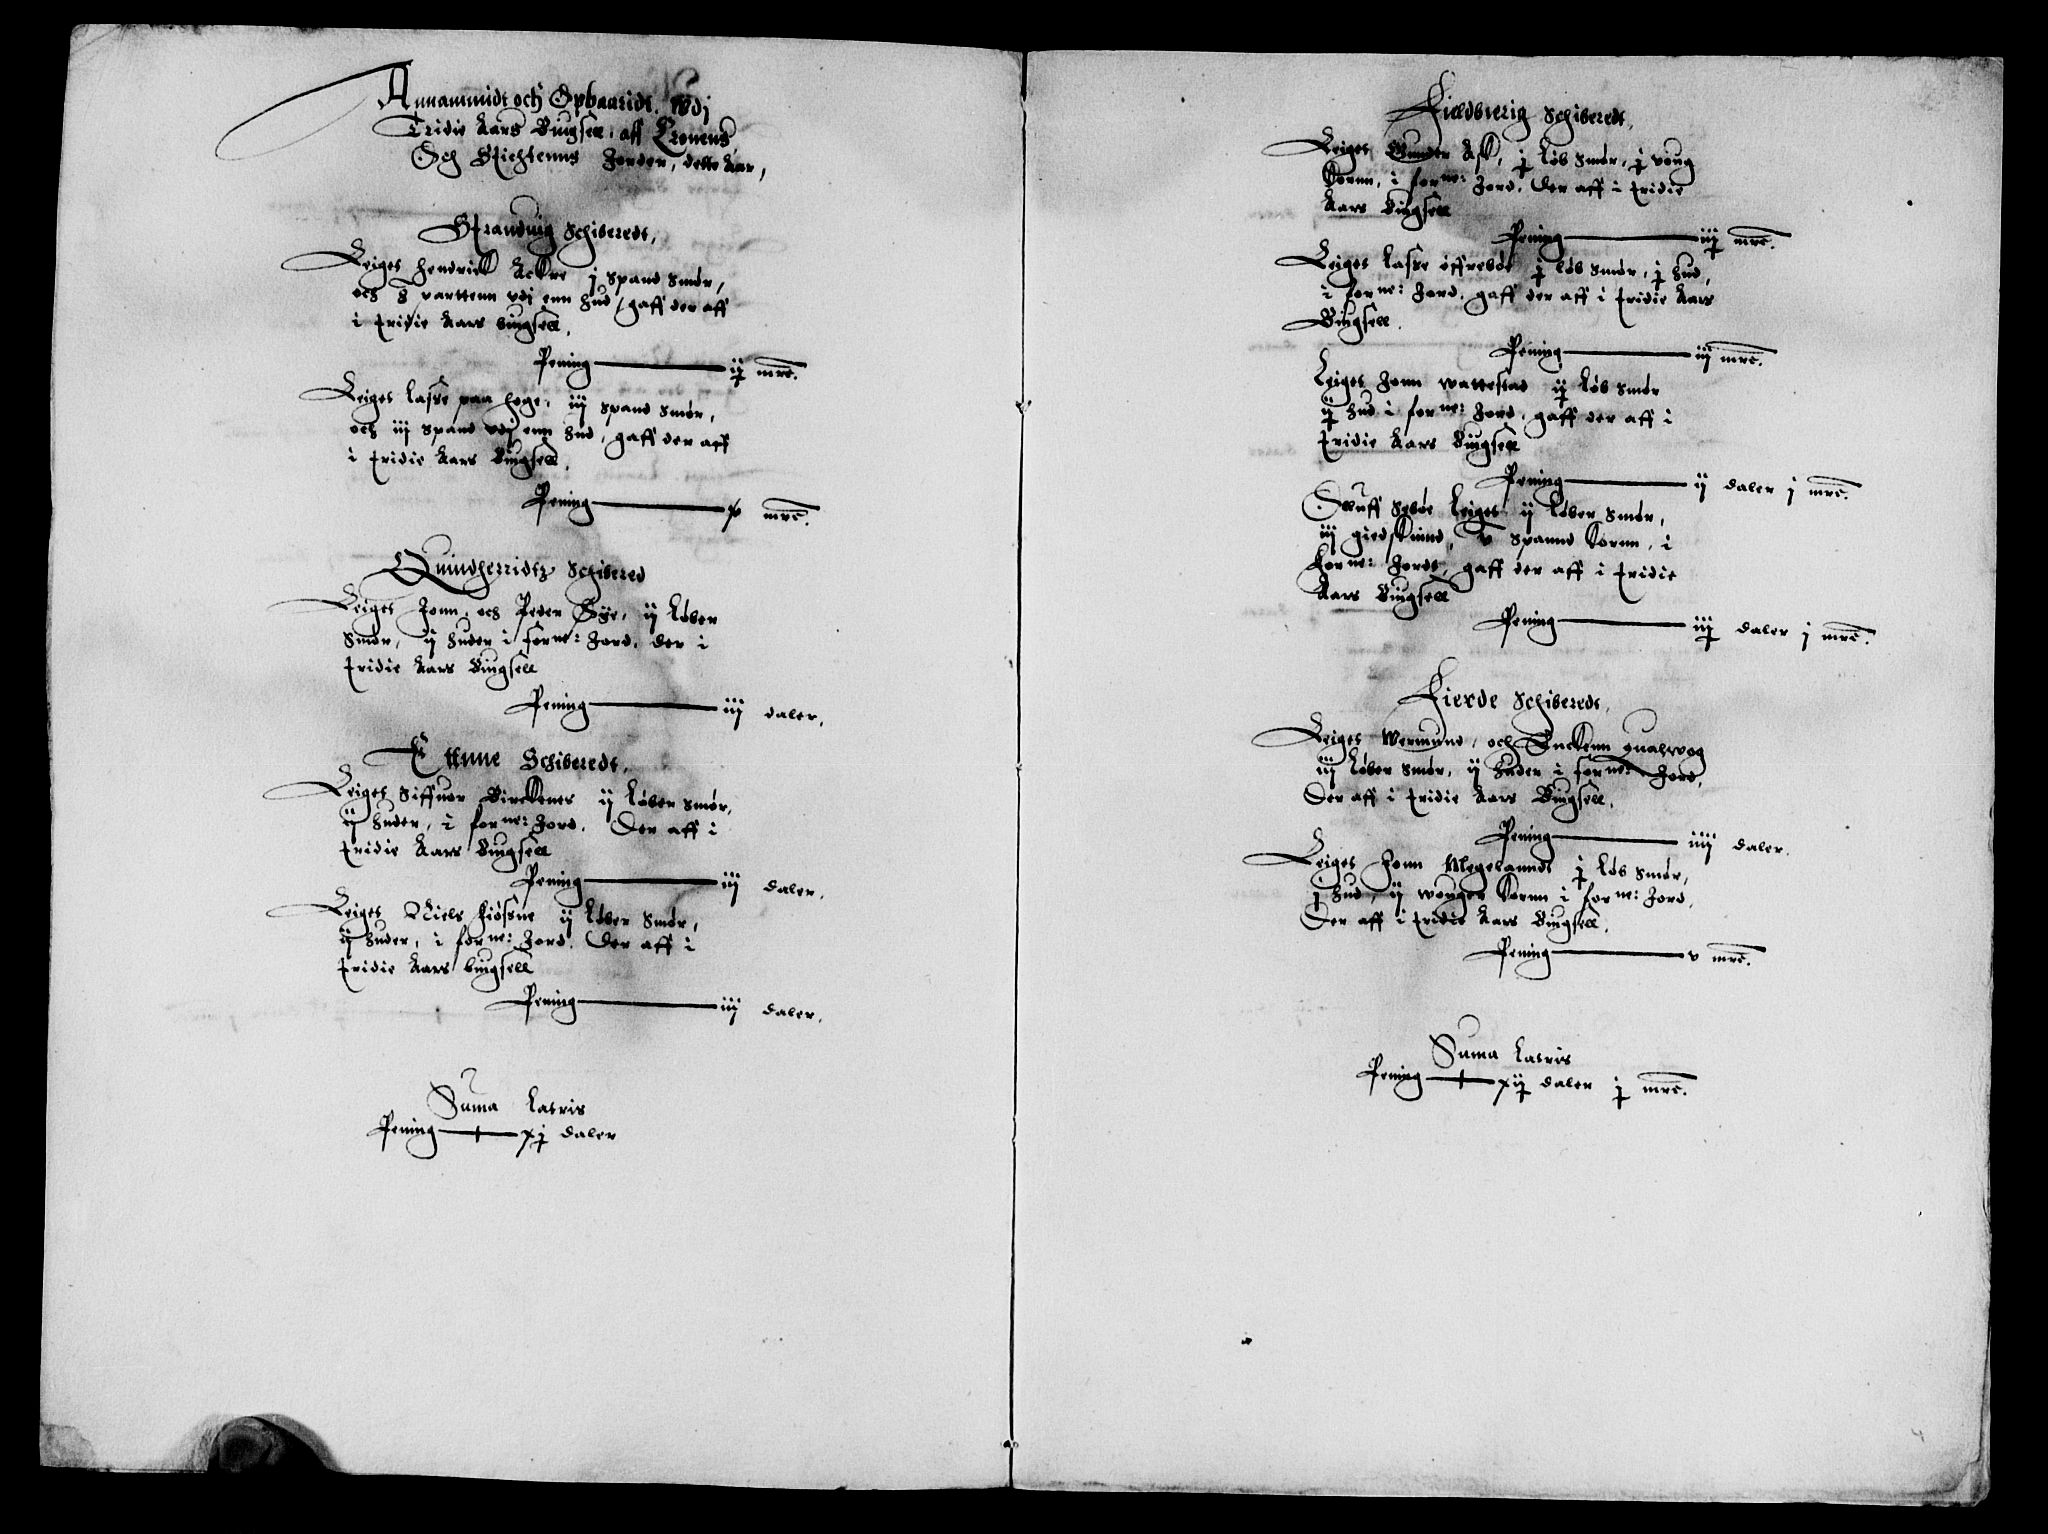 Annammidt och Opbaaridt, Vdj
Tridie Aars Bugsell, aff Cronens,
Och Stichtenns Jorder, dette Aar,
Stranduig Schiberedt,
Leiges hendrick Ackre j spand smør,
och varttenn vdj enn hud, gaff der aff
i tridie Aars bugsell,
Pening — ij mrc.
Leiges lasse paa hoge, iij spand smør,
och iij spand vdj enn hud, gaff der aff
i tridie Aars Bugsell,
Pening — mrc.
Quindherridtz Schibered
Leiges Jonn, och Peder Øye, ij Løber
smør, ij huder i forne: Jord, der i
tridie Aars Bugsell
Pening — iij daler,
Ettnne Schiberedt,
Leiges Siffuer Birckenes ij Løber smør,
ij huder, i forne: Jord, Der aff i
tridie Aars Bugsell
Pening — iij daler,
Leiges Niels hiøsne ij Løber smør,
ij huder, i forne: Jord, Der aff i
tridie Aars bugsell
Pening — iij daler,
Suma Latris
Pening — xj daler
Fieldbierig Schiberedt,
Leiges Gunder Ask, j Løb smør, j voug
Kornn, i forne: Jord, Der aff i tridie
Aars Bugsell
Pening — iij mrc.
Leiges lasse øffrebøe j løb smør, j hud,
i forne: Jord, gaff der aff i tridie Aars
Bugsell.
Pening — iij mrc.
Leiges Jonn wattestad ij Løb smør
ij hud i forne: Jord, gaff der aff i
tridie Aars Bugsell
Pening — ij daler j mrc.
Oluff Sebøe Leiges ij Løber smør,
iij giedskinnd, v spannd Kornn, i
forne: Jordt, gaff der aff i tridie
Aars Bugsell
Pening — iij daler j mrc.
Fierde Schiberedt,
Leiges Wermund, och qualwog
iij Løber smør, ij huder i forne: Jord,
Der aff i tridie Aars Bugsell,
Pening — iiij daler.
Leiges Jonn Megelanndt j Løb smør,
j hud, ij wouger Kornn i forne: Jord,
Der aff i tridie Aars Bugsell,
Pening — v mrc.
Suma Latris
Pening — xij daler j mrc.